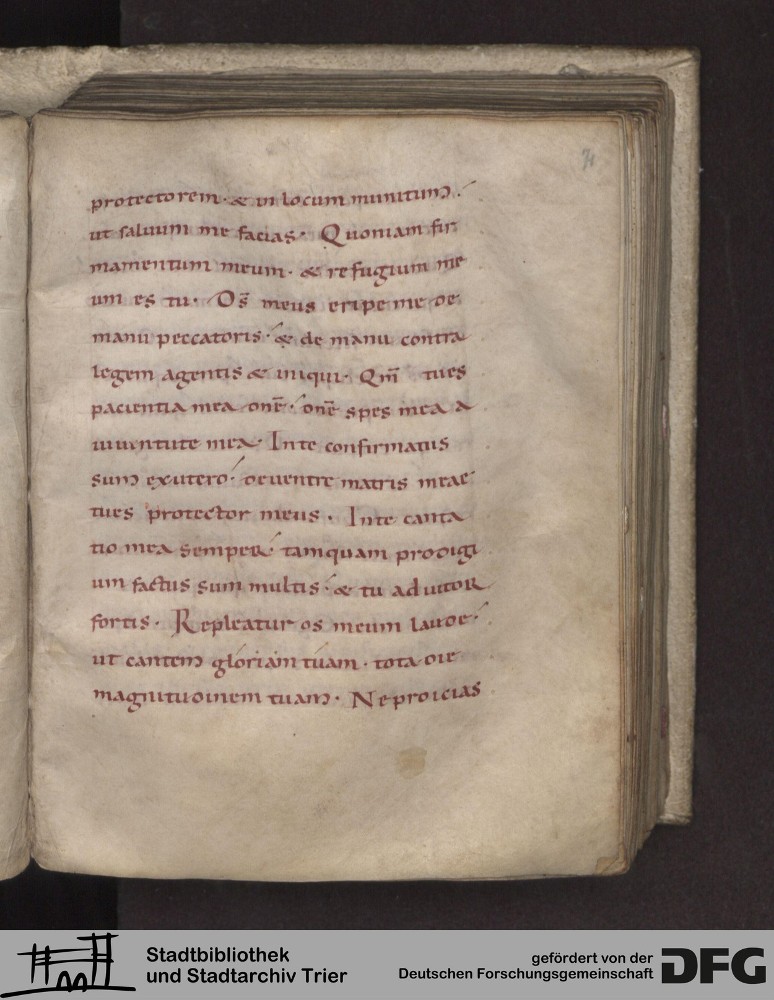 71
protectorem· & in locum munitum·
ut saluum me facias· Quoniam fir
mamentum meum· & refugium me
um es tu· Ds̄ meus eripe me de
manu peccatoris· & de manu contra
legem agentis & iniqui· Qm̄ tu es
pacientia mea dnē· dnē spes mea a
iuuentute mea· In te confirmatus
sum ex utero· de uentre matris meae
tu es protector meus· In te canta
tio mea semper· tamquam prodigi
um factus sum multis· & tu adiutor
fortis· Repleatur os meum laude·
ut cantem gloriam tuam· tota die
magnitudinem tuam· Ne proicias
Stadtbibliothek
und Stadtarchiv Trier
gefördert von der
Deutschen Forschungsgemeinschaft
DFG